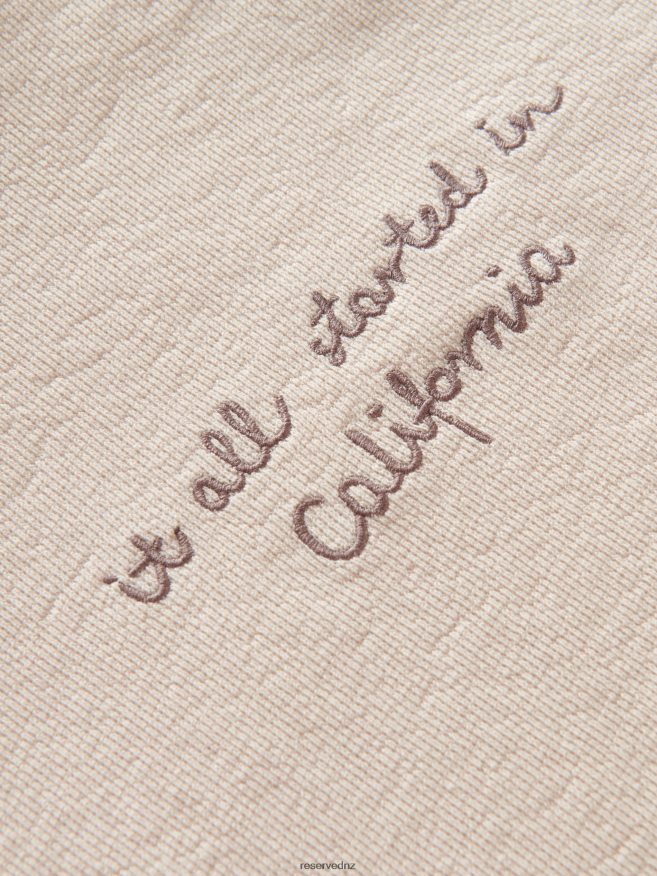 it all started in
California
reservednz